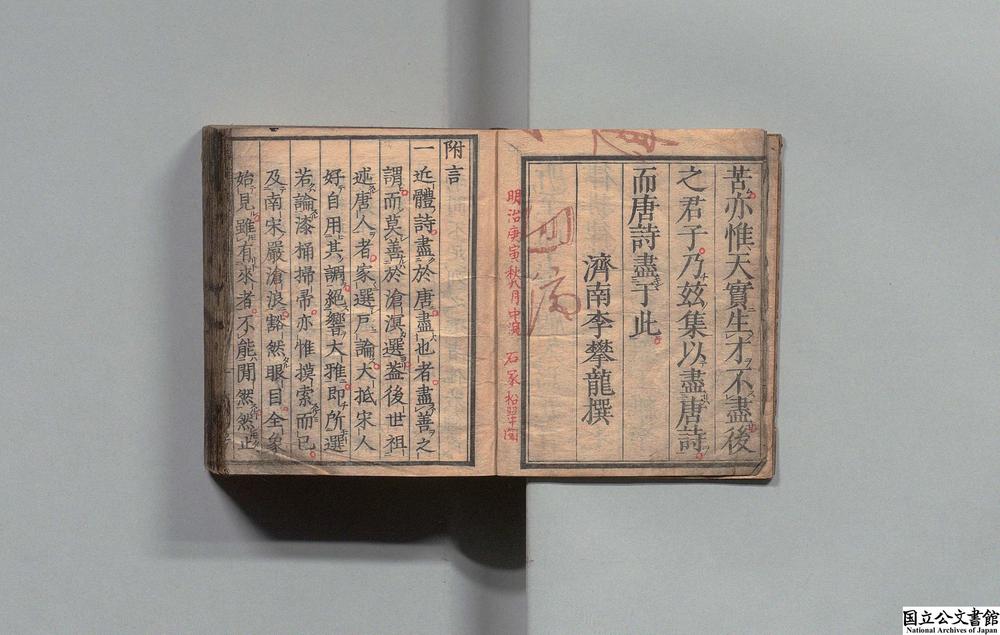 苦亦惟天實生才不盡後
之君子乃玆集以盡唐詩
而唐詩盡于此
濟南李攀龍撰
明治庚寅秋八月中
附言
一近體詩盡於唐盡也者盡善之
謂而莫善於滄溟選蓋後世祖
述唐人者家選戸論大抵宋人
好自用其謂絕響大雅即所選
若論漆桶掃帚亦惟摸索而已
及南宋嚴滄浪豁然眼目全象
始見雖有來者不能間然然正
国立公文書館
National Archives of Japan